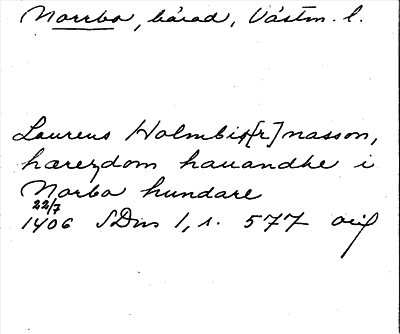 Norrbo, härad, Västm. l.
Laurens Holmbis[r]nasson,
hærezdom hauandhe i
Norbo hundare
22/7
1406 SDns 1, s. 577 orig